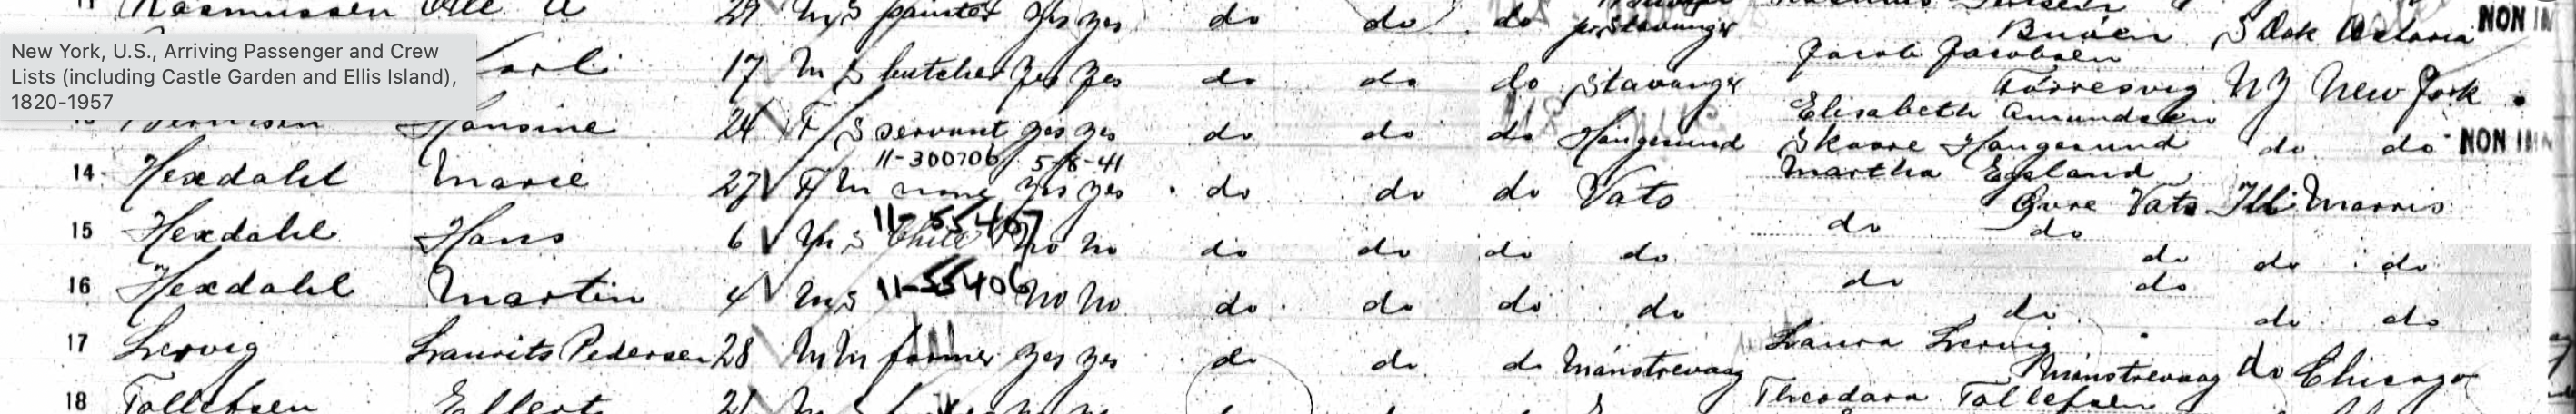 Rasmussen Olle A 29 M S painter yes yes do do do Stavanger
Buøen S Dak Astoria NON IN
New York, U.S., Arriving Passenger and Crew
Lists (including Castle Garden and Ellis Island),
1820-1957
Karl 17 M S butcher yes yes do do do Stavanger Jacob Jacobsen
NY New York
Hansine 24 F S servant yes yes do do do Haugesund Elisabeth Amundsen
Skaare Haugesund do do NON IN
11-300706 5-8-41
14 Hexdahl Marie 27 F M none yes yes do do do Vats Martha Egeland
Øvre Vats Ill Morris
11-55407
15 Hexdahl Hans 6 M S Child no no do do do do do do
do do do
11-55406
16 Hexdahl Martin 4 M S No No do do do do do do
do do do
17 Lervig Laurits Pedersen 28 M M farmer yes yes do do do Mønstrevaag Laura Lervig
Mønstrevaag do Chicago
18 Tollefsen Ellert Theodora Tollefsen